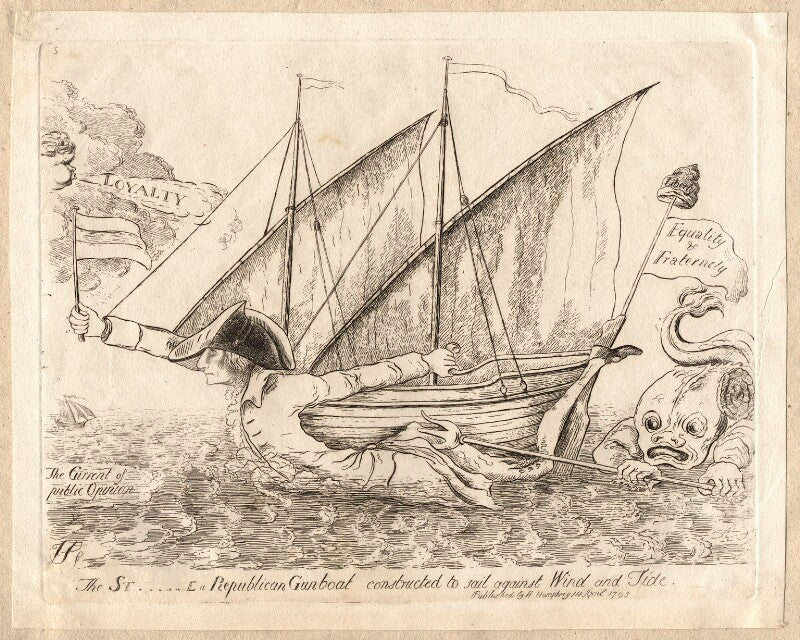 5
LOYALTY
Equality
&
Fraternity
The Current of
public Opinion
The St.....E a Republican Gunboat constructed to sail against Wind and Tide.
Published by H Humphrey 1st April 1795